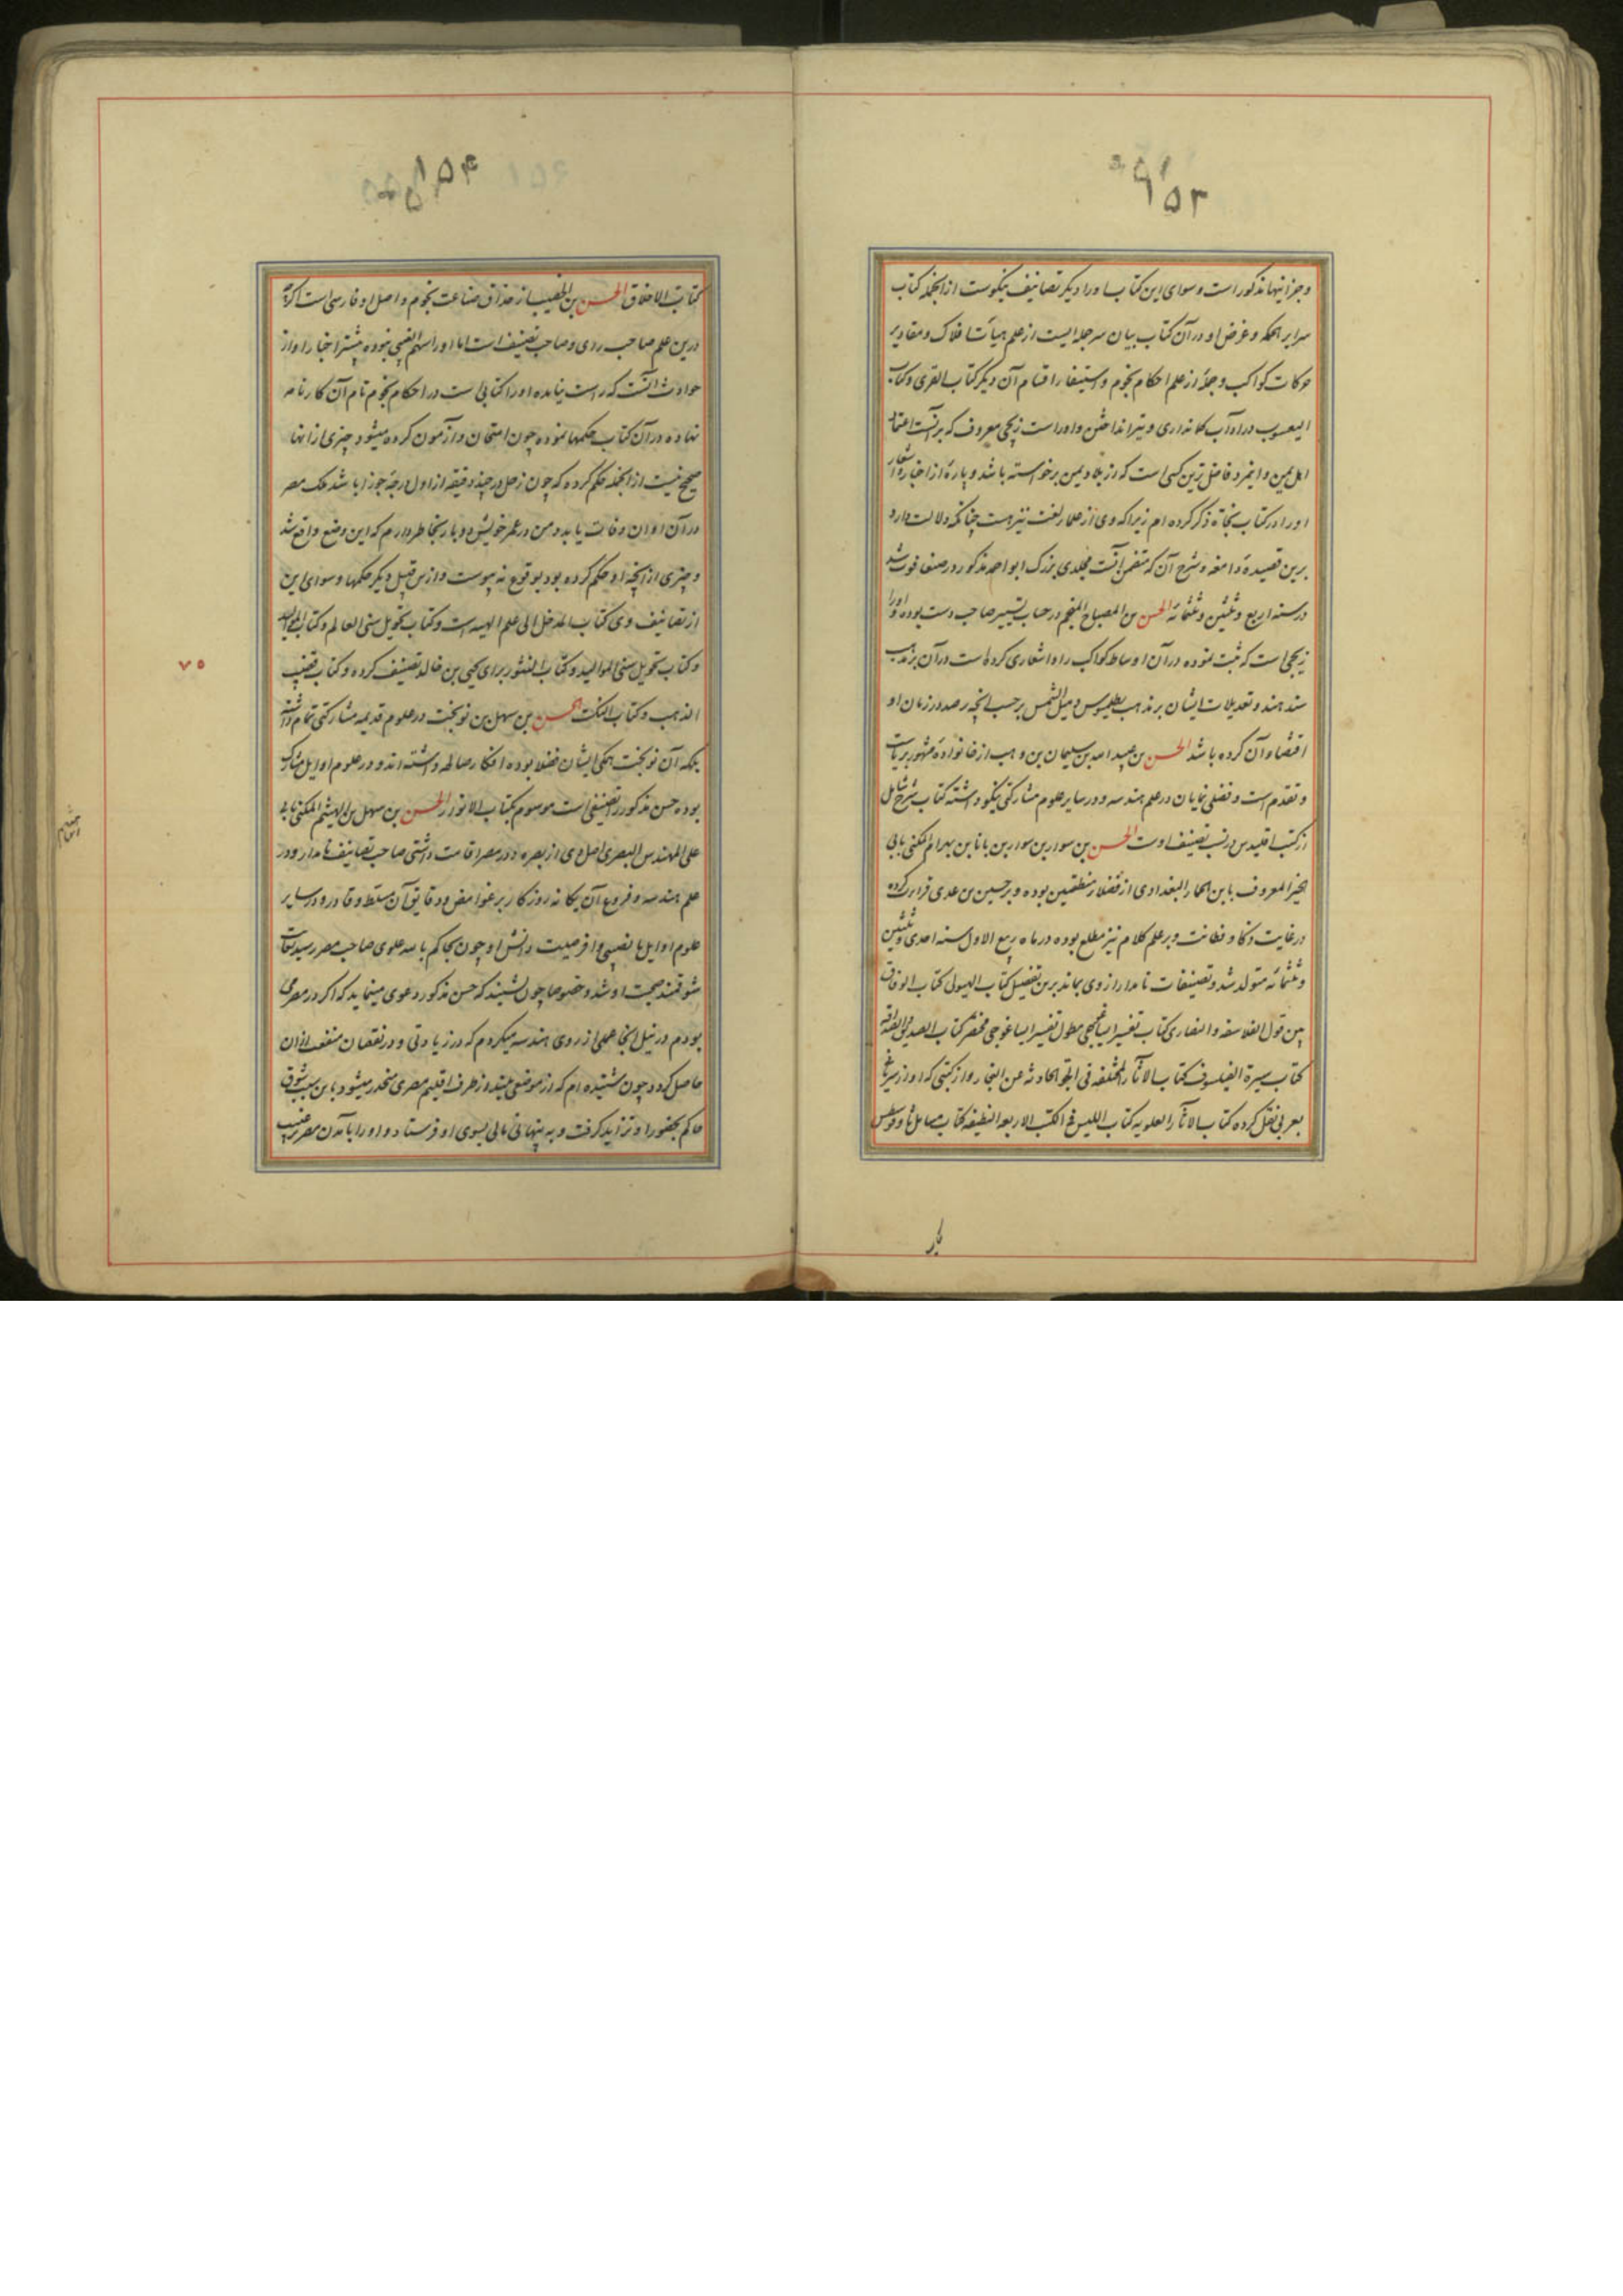 ۱۵۳
و جز اینها مذکور است و سوای این کتاب او را دیگر تصانیف نیکوست از انجمله کتاب
سرایر الحکمه و غرض او در آن کتاب بیان سر جمله ایست از علم هیأت افلاک و مقادیر
حرکات کواکب و جمله از علم احکام نجوم و استیفا اقسام آن دیگر کتاب القوی و کتاب
الیعسوب در آداب کمانداری و تیر انداختن و او راست زیجی معروف که بر آنست اعتماد
اهل یمن و اینمرد فاضل ترین کسی است که از بلاد یمن برخواسته باشد و پارهٔ از اخبار و اشعار
او را در کتاب نحاة ذکر کرده ام زیرا که وی از علمای لغت نیز هست چنانکه دلالت دارد
برین قصیده دامغه و شرح آن که متضمن آنست مجلدی بزرگ ابو احمد مذکور در صنعا فوت شد
در سنه اربع و ثلثین و ثلثمائه الحسن بن المصباح المنجم در حساب تسییر صاحب دست بوده و او را
زیجی است که ثبت نموده در آن اوساط کواکب را و اشعاری کرده است در آن بر مذهب
سند هند و تعدیلات ایشان بر مذهب بطلمیوس و میل الشمس بر حسب انچه رصد در زمان او
اقتضاء آن کرده باشد الحسن بن عبید الله بن سلیمان بن وهب از خانوادهٔ مشهور بریاست
و تقدم است و فضلی نمایان در علم هندسه و در سایر علوم مشارکتی نیکو داشته کتاب شرح مشکل
از کتب اقلیدس در نسب تصنیف اوست الحسن بن سوار بن بابا بن بهرام المکنی بابی
الخیر المعروف بابن الخمار البغدادی از فضلاء منطقیین بوده و بر حسین بن عدی قراءت کرده
در غایت ذکا و فطانت و بر علم کلام نیز مطلع بوده در ماه ربیع الاول سنه احدی و ثلثین
و ثلثمائه متولد شد و تصنیفات نامدار از وی بماند برین تفصیل کتاب الهیولی کتاب الوفاق
بین قول الفلاسفه و النصاری کتاب تفسیر ایساغوجی مطول تفسیر ایساغوجی مختصر کتاب الصدیق و الصداقه
کتاب سیرة الفیلسوف کتاب الاثار المختلفه فی الجو الحادثه عن البخار و از کتبی که او از سریانی
بعربی نقل کرده کتاب الاثار العلویه کتاب اللبس فی الکتب الاربعه المنطقیه کتاب مسایل ثاوفرسطس
۱۵۴
کتاب الاخلاق الحسن بن الخصیب از حذاق صناعت نجوم و اصل او فارسی است اگرچه
درین علم صاحب رای و صاحب تصنیف است اما او را سهم الغیبی نبوده بیشتر اخبار او از
حوادث آنست که راست نیامده او را کتابی است در احکام نجوم نام آن کارنامه
نهاده در آن کتاب حکمها نموده چون امتحان و آزمون کرده میشود چیزی از انها
صحیح نیست از انجمله حکم کرده که چون زحل در چند دقیقه از اول درجه جوزا باشد ملک مصر
در آن اوان وفات یابد و من در عمر خویش دو بار بخاطر دارم که این وضع واقع شد
و چیزی از انچه او حکم کرده بود بوقوع نه پیوست و ازین قبیل دیگر حکمها و سوای این
از تصانیف وی کتاب المدخل الی علم الهیئه است و کتاب تحویل سنی العالم و کتاب الموالید
و کتاب تحویل سنی الموالید و کتاب المنثور برای یحیی بن خالد تصنیف کرده و کتاب قضیب
الذهب و کتاب النکت الحسن بن سهل بن نوبخت در علوم قدیمه مشارکتی تمام داشته
بلکه آن نوبخت همگی ایشان فضلا بوده افکار صالحه داشته اند و در علوم اوایل مشارک
بوده حسن مذکور را تصنیفی است موسوم بکتاب الانوار الحسن بن سهل بن الهیثم المکنی بابی
علی المهندس البصری اصل وی از بصره و در مصر اقامت داشتی صاحب تصانیف نامدار و در
علم هندسه و فروع آن یگانه روزگار بر غوامض و دقایق آن متسلط و قادر و در سایر
علوم اوایل با نصیبی وافر صیت دانش او چون بحاکم بالله علوی صاحب مصر رسید بغایت
شوقمند صحبت او شد و خصوصا چون شنید که حسن مذکور دعوی مینماید که اگر در مصر می
بودم در نیل انجا عملی از روی هندسه میکردم که در زیادتی و در نقصان منفعت از ان
حاصل گردد چون شنیده ام که از موضعی بلند از طرف اقلیم مصری منحدر میشود باین سبب شوق
حاکم بحضور او تزاید گرفت و به پنهانی مالی بسوی او فرستاد و او را بآمدن مصر ترغیب
۷۵